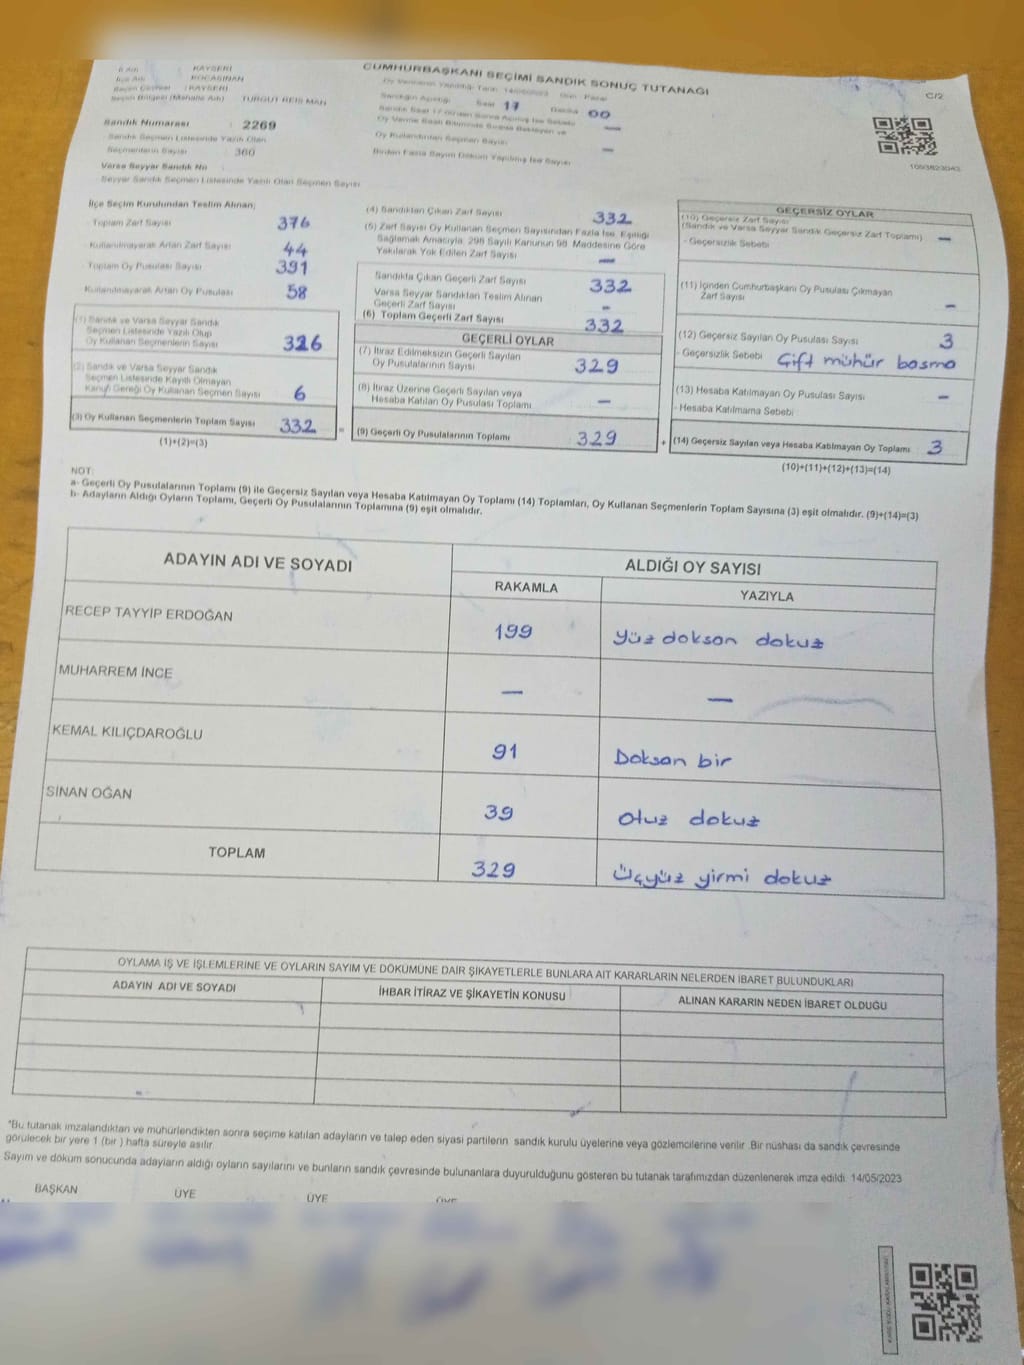 İli Adı KAYSERİ
İlçe Adı KOCASİNAN
Seçim Çevresi : KAYSERİ
Seçim Bölgesi (Mahalle Adı) TURGUT REİS MAH
Sandık Numarası : 2269
Sandık Seçmen Listesinde Yazılı Olan
Seçmenlerin Sayısı 360
Varsa Seyyar Sandık No :
Seyyar Sandık Seçmen Listesinde Yazılı Olan Seçmen Sayısı
CUMHURBAŞKANI SEÇİMİ SANDIK SONUÇ TUTANAĞI
Oy Vermenin Yapıldığı Tarih 14/05/2023 Gün: Pazar
Sandığın Açıldığı Saat 17 Dakika 00
Sandık Saat 17:00'den Sonra Açılmış İse Sebebi —
Oy Verme Saati Bitiminde Sırada Bekleyen ve
Oy Kullandırılan Seçmen Sayısı —
Birden Fazla Sayım Döküm Yapılmış İse Sayısı
C/2
İlçe Seçim Kurulundan Teslim Alınan;
- Toplam Zarf Sayısı 376
- Kullanılmayarak Artan Zarf Sayısı 44
- Toplam Oy Pusulası Sayısı 391
- Kullanılmayarak Artan Oy Pusulası 58
(1) Sandık ve Varsa Seyyar Sandık
Seçmen Listesinde Yazılı Olup
Oy Kullanan Seçmenlerin Sayısı 326
(2) Sandık ve Varsa Seyyar Sandık
Seçmen Listesinde Kayıtlı Olmayan
Kanun Gereği Oy Kullanan Seçmen Sayısı 6
(3) Oy Kullanan Seçmenlerin Toplam Sayısı 332
(1)+(2)=(3)
=
(4) Sandıktan Çıkan Zarf Sayısı 332
(5) Zarf Sayısı Oy Kullanan Seçmen Sayısından Fazla İse, Eşitliği
Sağlamak Amacıyla, 298 Sayılı Kanunun 98. Maddesine Göre
Yakılarak Yok Edilen Zarf Sayısı —
Sandıkta Çıkan Geçerli Zarf Sayısı 332
Varsa Seyyar Sandıktan Teslim Alınan
Geçerli Zarf Sayısı —
(6) Toplam Geçerli Zarf Sayısı 332
GEÇERLİ OYLAR
(7) İtiraz Edilmeksizin Geçerli Sayılan
Oy Pusulalarının Sayısı 329
(8) İtiraz Üzerine Geçerli Sayılan veya
Hesaba Katılan Oy Pusulası Toplamı —
(9) Geçerli Oy Pusulalarının Toplamı 329
+
GEÇERSİZ OYLAR
(10) Geçersiz Zarf Sayısı
(Sandık ve Varsa Seyyar Sandık Geçersiz Zarf Toplamı) —
- Geçersizlik Sebebi
(11) İçinden Cumhurbaşkanı Oy Pusulası Çıkmayan
Zarf Sayısı —
(12) Geçersiz Sayılan Oy Pusulası Sayısı 3
- Geçersizlik Sebebi Çift mühür basma
(13) Hesaba Katılmayan Oy Pusulası Sayısı —
- Hesaba Katılmama Sebebi
(14) Geçersiz Sayılan veya Hesaba Katılmayan Oy Toplamı 3
(10)+(11)+(12)+(13)=(14)
NOT:
a- Geçerli Oy Pusulalarının Toplamı (9) ile Geçersiz Sayılan veya Hesaba Katılmayan Oy Toplamı (14) Toplamları, Oy Kullanan Seçmenlerin Toplam Sayısına (3) eşit olmalıdır. (9)+(14)=(3)
b- Adayların Aldığı Oyların Toplamı, Geçerli Oy Pusulalarının Toplamına (9) eşit olmalıdır.
ADAYIN ADI VE SOYADI ALDIĞI OY SAYISI
RAKAMLA YAZIYLA
RECEP TAYYİP ERDOĞAN 199 Yüz doksan dokuz
MUHARREM İNCE — —
KEMAL KILIÇDAROĞLU 91 Doksan bir
SİNAN OĞAN 39 Otuz dokuz
TOPLAM 329 Üçyüz yirmi dokuz
OYLAMA İŞ VE İŞLEMLERİNE VE OYLARIN SAYIM VE DÖKÜMÜNE DAİR ŞİKAYETLERLE BUNLARA AİT KARARLARIN NELERDEN İBARET BULUNDUKLARI
ADAYIN ADI VE SOYADI İHBAR İTİRAZ VE ŞİKAYETİN KONUSU ALINAN KARARIN NEDEN İBARET OLDUĞU
"Bu tutanak imzalandıktan ve mühürlendikten sonra seçime katılan adayların ve talep eden siyasi partilerin sandık kurulu üyelerine veya gözlemcilerine verilir .Bir nüshası da sandık çevresinde
görülecek bir yere 1 (bir ) hafta süreyle asılır.
Sayım ve döküm sonucunda adayların aldığı oyların sayılarını ve bunların sandık çevresinde bulunanlara duyurulduğunu gösteren bu tutanak tarafımızdan düzenlenerek imza edildi. 14/05/2023
BAŞKAN ÜYE ÜYE ÜYE